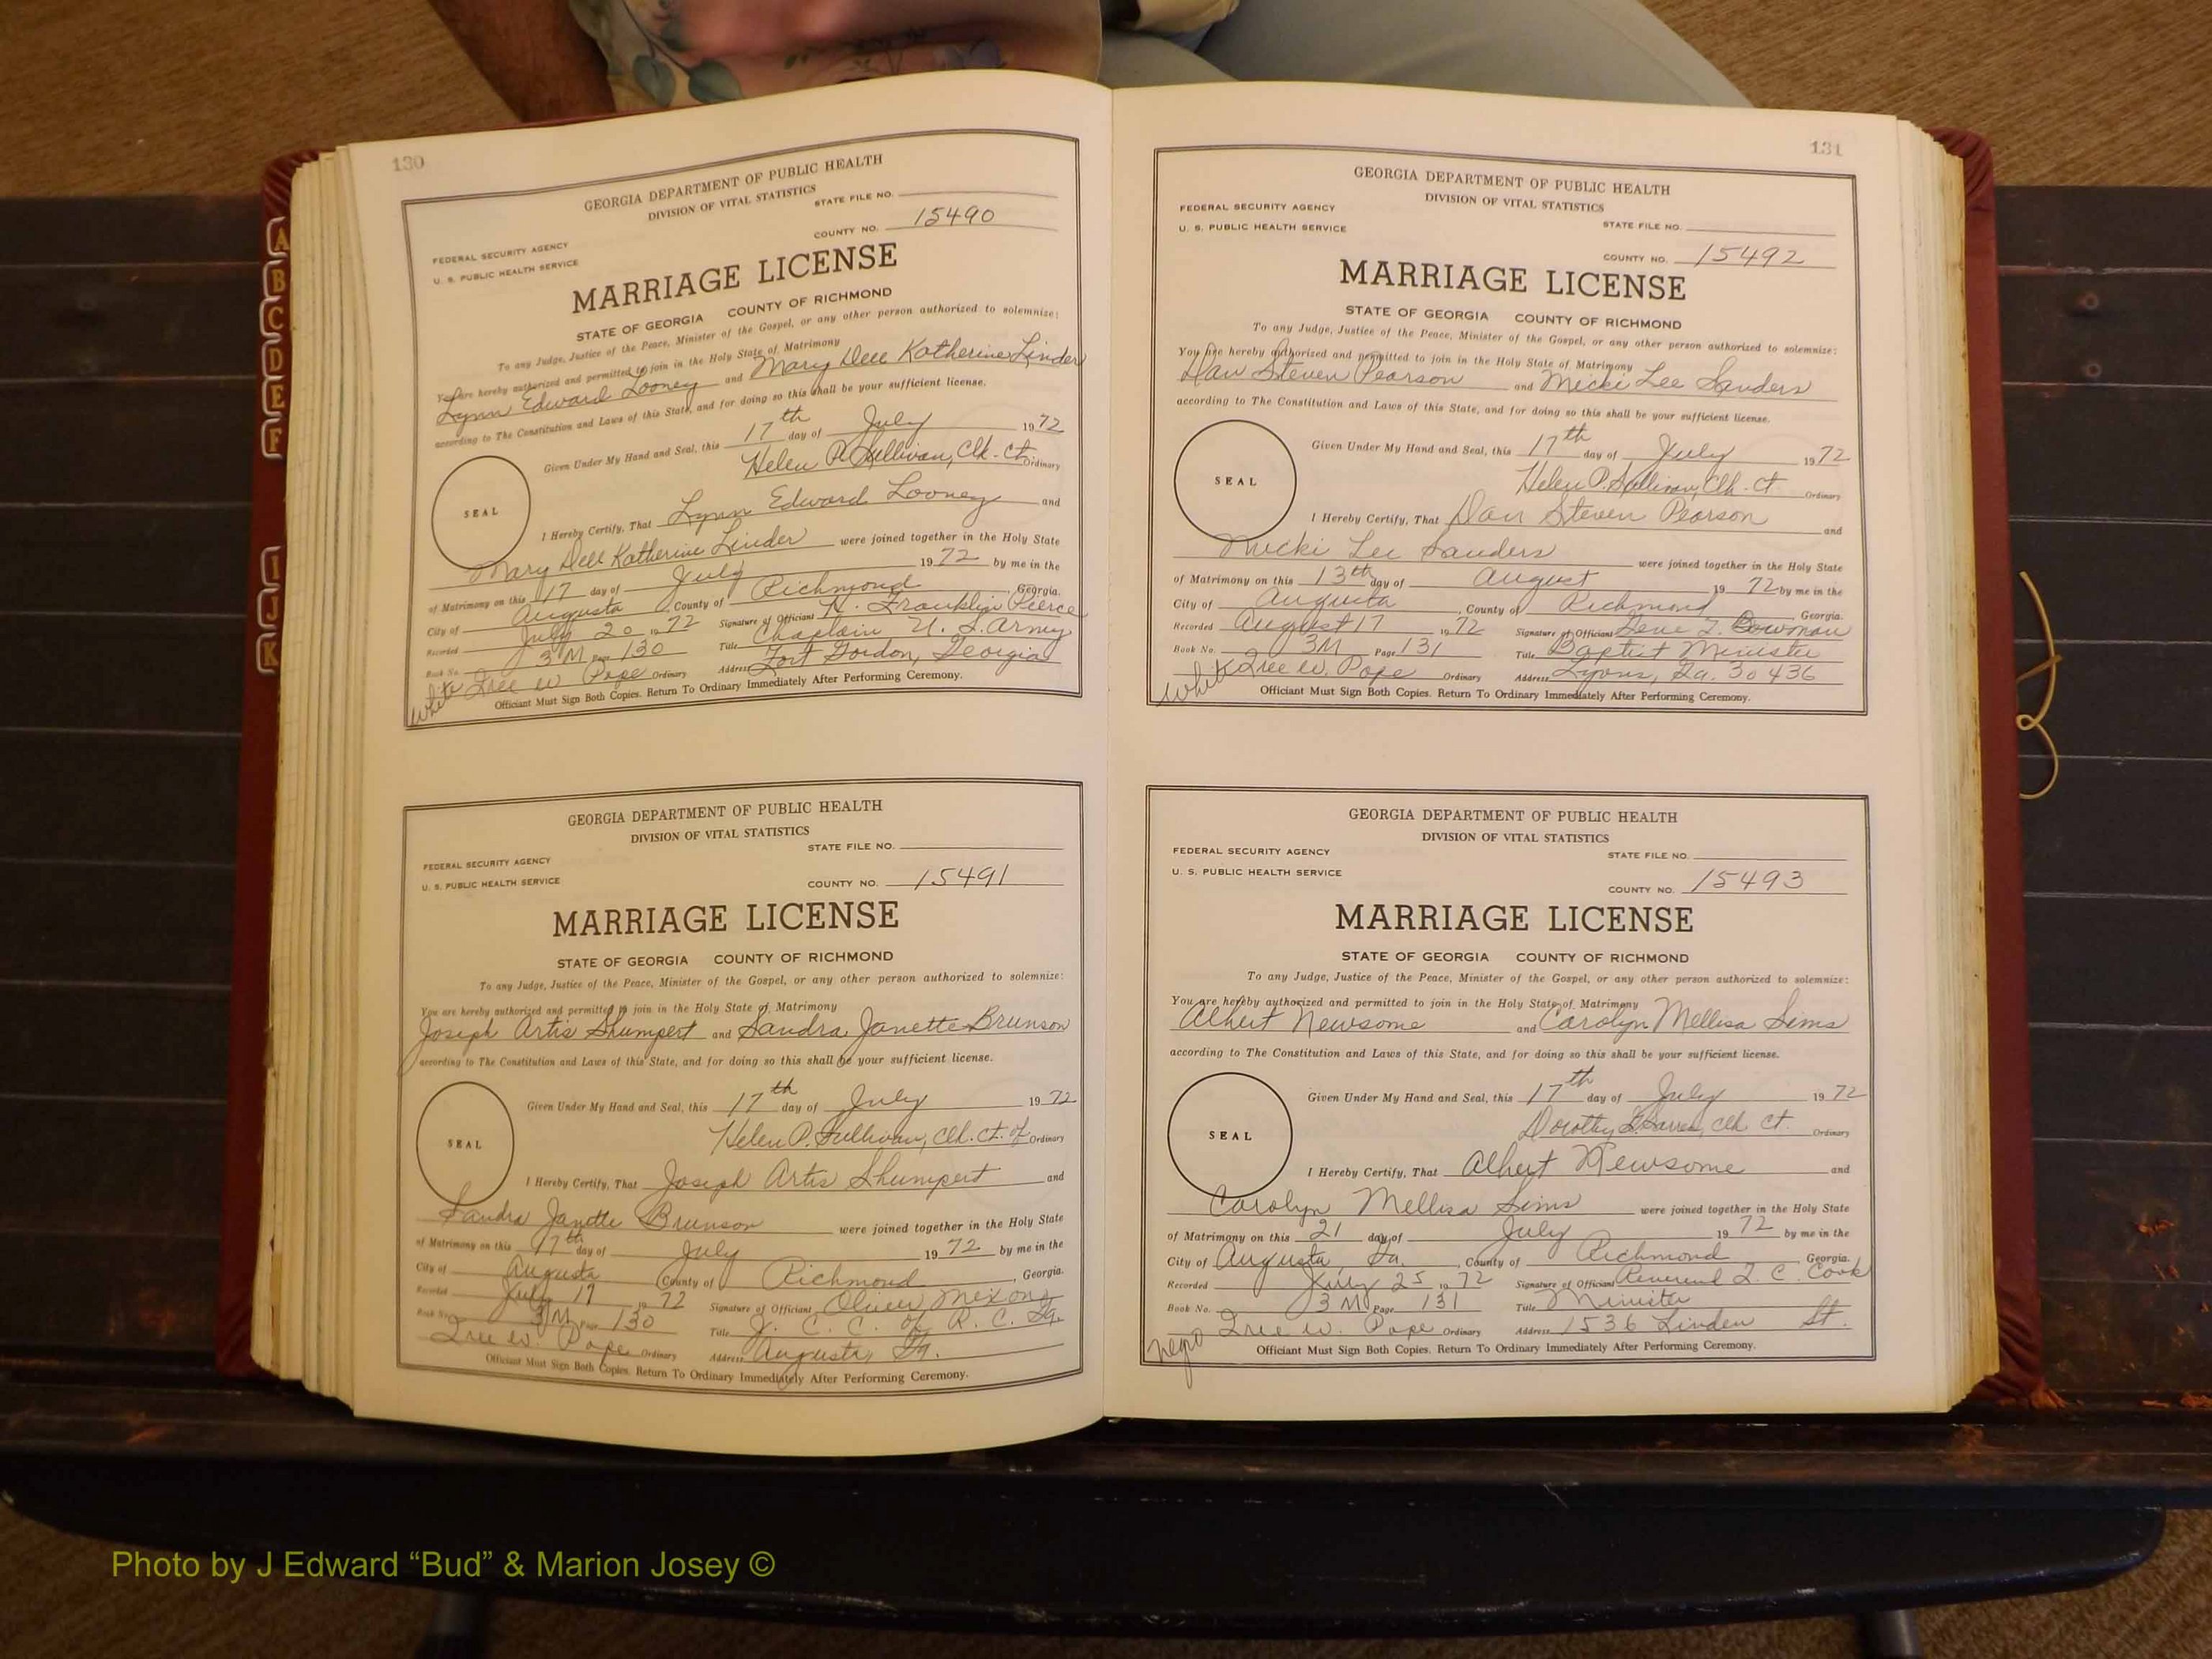 A
B
C
D
E
F
I
J
K
130
GEORGIA DEPARTMENT OF PUBLIC HEALTH
DIVISION OF VITAL STATISTICS
STATE FILE NO.
COUNTY NO. 15490
FEDERAL SECURITY AGENCY
U. S. PUBLIC HEALTH SERVICE
MARRIAGE LICENSE
STATE OF GEORGIA COUNTY OF RICHMOND
To any Judge, Justice of the Peace, Minister of the Gospel, or any other person authorized to solemnize:
You are hereby authorized and permitted to join in the Holy State of Matrimony
Lynn Edward Looney and Mary Dell Katherine Linder
according to The Constitution and Laws of this State, and for doing so this shall be your sufficient license.
Given Under My Hand and Seal, this 17th day of July 1972
Helen P. Sullivan, Clk. Ct. Ordinary
SEAL
I Hereby Certify, That Lynn Edward Looney and
Mary Dell Katherine Linder were joined together in the Holy State
of Matrimony on this 17 day of July 1972 by me in the
City of Augusta, County of Richmond, Georgia.
Recorded July 20 1972 Signature of Officiant H. Franklin Pierce
Book No. 3M Page 130 Title Chaplain U. S. Army
Tree W. Pope Ordinary Address Fort Gordon, Georgia
white
Officiant Must Sign Both Copies. Return To Ordinary Immediately After Performing Ceremony.
GEORGIA DEPARTMENT OF PUBLIC HEALTH
DIVISION OF VITAL STATISTICS
STATE FILE NO.
FEDERAL SECURITY AGENCY
U. S. PUBLIC HEALTH SERVICE
COUNTY NO. 15491
MARRIAGE LICENSE
STATE OF GEORGIA COUNTY OF RICHMOND
To any Judge, Justice of the Peace, Minister of the Gospel, or any other person authorized to solemnize:
You are hereby authorized and permitted to join in the Holy State of Matrimony
Joseph Artis Shumpert and Sandra Janette Brunson
according to The Constitution and Laws of this State, and for doing so this shall be your sufficient license.
Given Under My Hand and Seal, this 17th day of July 1972
Helen P. Sullivan, Clk. Ct. of Ordinary
SEAL
I Hereby Certify, That Joseph Artis Shumpert and
Sandra Janette Brunson were joined together in the Holy State
of Matrimony on this 17th day of July 1972 by me in the
City of Augusta County of Richmond, Georgia.
Recorded July 19 1972 Signature of Officiant Oliver Mixon
Book No. 3M Page 130 Title J. C. C. of R. C. Ga.
Tree W. Pope Ordinary Address Augusta, Ga.
Officiant Must Sign Both Copies. Return To Ordinary Immediately After Performing Ceremony.
131
GEORGIA DEPARTMENT OF PUBLIC HEALTH
DIVISION OF VITAL STATISTICS
FEDERAL SECURITY AGENCY
U. S. PUBLIC HEALTH SERVICE
STATE FILE NO.
COUNTY NO. 15492
MARRIAGE LICENSE
STATE OF GEORGIA COUNTY OF RICHMOND
To any Judge, Justice of the Peace, Minister of the Gospel, or any other person authorized to solemnize:
You are hereby authorized and permitted to join in the Holy State of Matrimony
Dan Steven Pearson and Micki Lee Sanders
according to The Constitution and Laws of this State, and for doing so this shall be your sufficient license.
Given Under My Hand and Seal, this 17th day of July 1972
Helen P. Sullivan, Clk. Ct. Ordinary
SEAL
I Hereby Certify, That Dan Steven Pearson and
Micki Lee Sanders were joined together in the Holy State
of Matrimony on this 13th day of August 1972 by me in the
City of Augusta, County of Richmond Georgia.
Recorded August 17 1972 Signature of Officiant Gene Z. Bowman
Book No. 3M Page 131 Title Baptist Minister
Tree W. Pope Ordinary Address Lyons, Ga. 30436
white
Officiant Must Sign Both Copies. Return To Ordinary Immediately After Performing Ceremony.
GEORGIA DEPARTMENT OF PUBLIC HEALTH
DIVISION OF VITAL STATISTICS
FEDERAL SECURITY AGENCY
STATE FILE NO.
U. S. PUBLIC HEALTH SERVICE
COUNTY NO. 15493
MARRIAGE LICENSE
STATE OF GEORGIA COUNTY OF RICHMOND
To any Judge, Justice of the Peace, Minister of the Gospel, or any other person authorized to solemnize:
You are hereby authorized and permitted to join in the Holy State of Matrimony
Albert Newsome and Carolyn Mellisa Sims
according to The Constitution and Laws of this State, and for doing so this shall be your sufficient license.
Given Under My Hand and Seal, this 17th day of July 1972
Dorothy Clk. Ct. Ordinary
SEAL
I Hereby Certify, That Albert Newsome and
Carolyn Mellisa Sims were joined together in the Holy State
of Matrimony on this 21 day of July 1972 by me in the
City of Augusta, Ga., County of Richmond, Georgia.
Recorded July 25 1972 Signature of Officiant Reverend L. C. Cook
Book No. 3M Page 131 Title Minister
Tree W. Pope Ordinary Address 1536 Linden St.
negro
Officiant Must Sign Both Copies. Return To Ordinary Immediately After Performing Ceremony.
Photo by J Edward “Bud” & Marion Josey ©